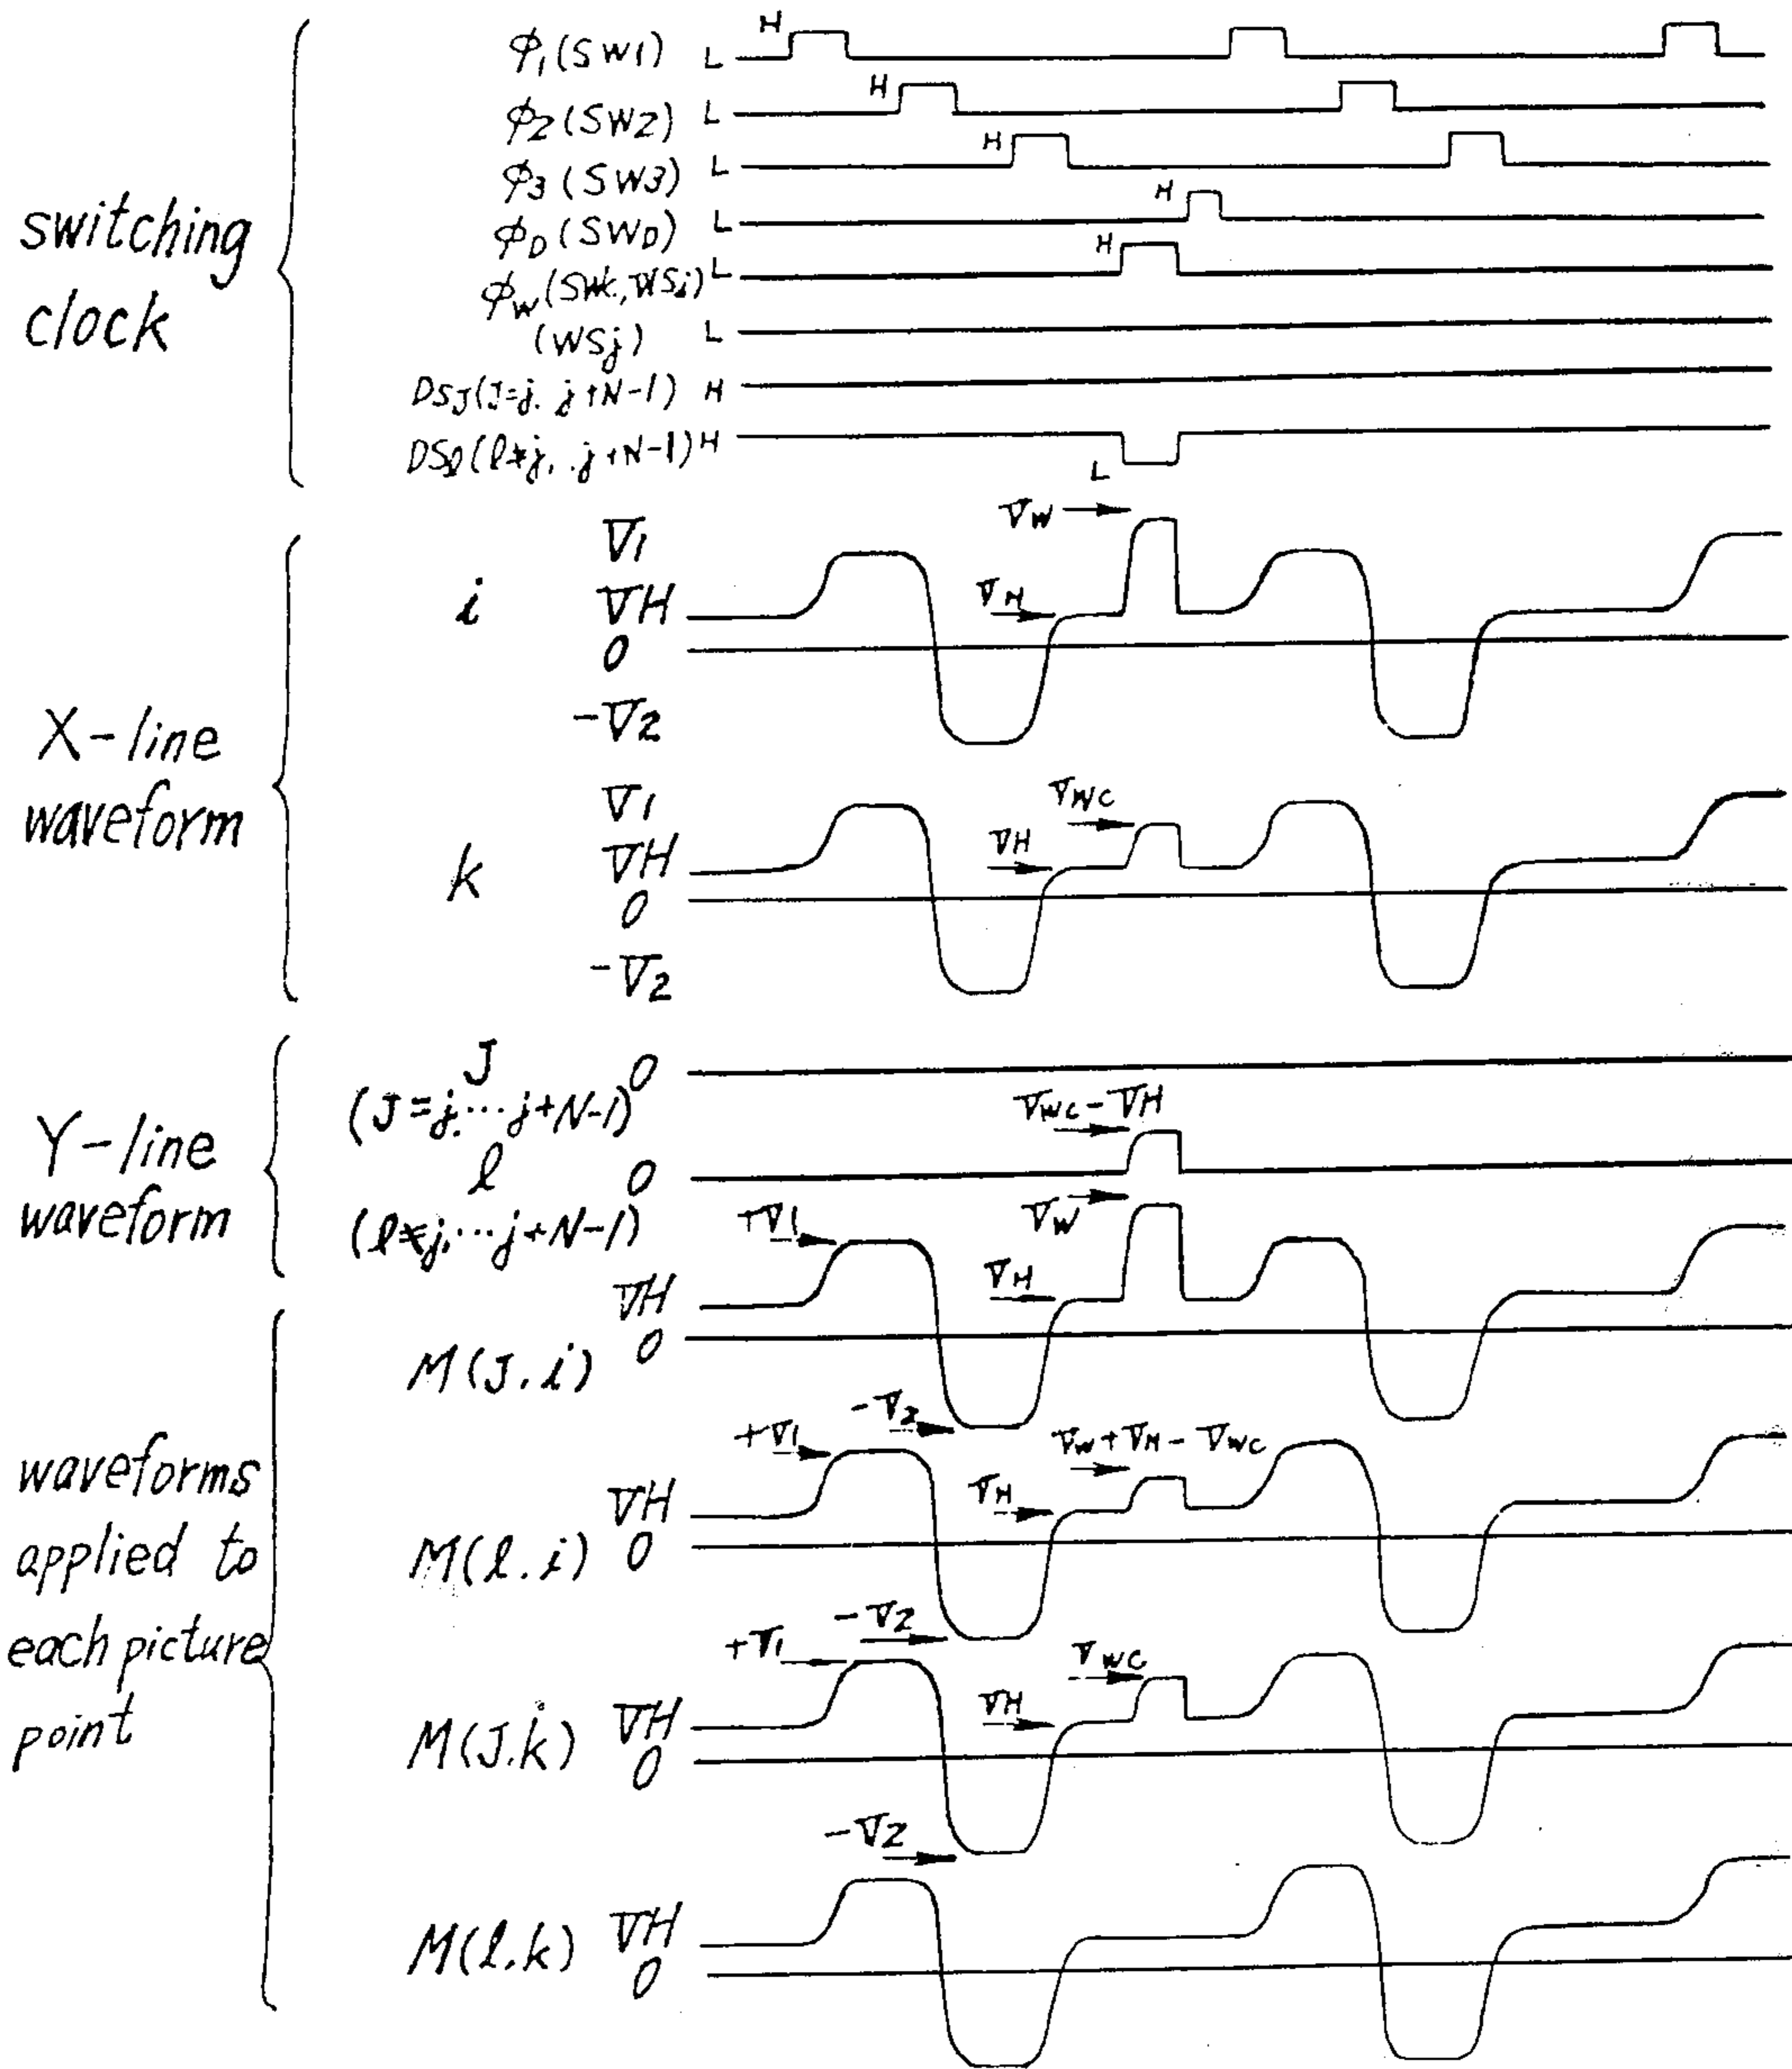 switching
clock
φ1(SW1) L H
φ2(SW2) L H
φ3(SW3) L H
φD(SWD) L H
φW(SWk, WSi) L H
(WSj) L
DSJ(J=j, j+N-1) H
DSl(l≠j, ..j+N-1) H L
X-line
waveform
i
V1
VH
0
-V2
VW
VH
k
V1
VH
0
-V2
VWC
VH
Y-line
waveform
J 0
(J=j,...j+N-1)
l 0
(l≠j,...j+N-1)
VWC-VH
waveforms
applied to
each picture
point
M(J.i)
VH
0
+V1
VH
VW
-V2
M(l.i)
VH
0
+V1
VH
VW+VH-VWC
-V2
M(J.k)
VH
0
+V1
VH
VWC
-V2
M(l.k)
VH
0